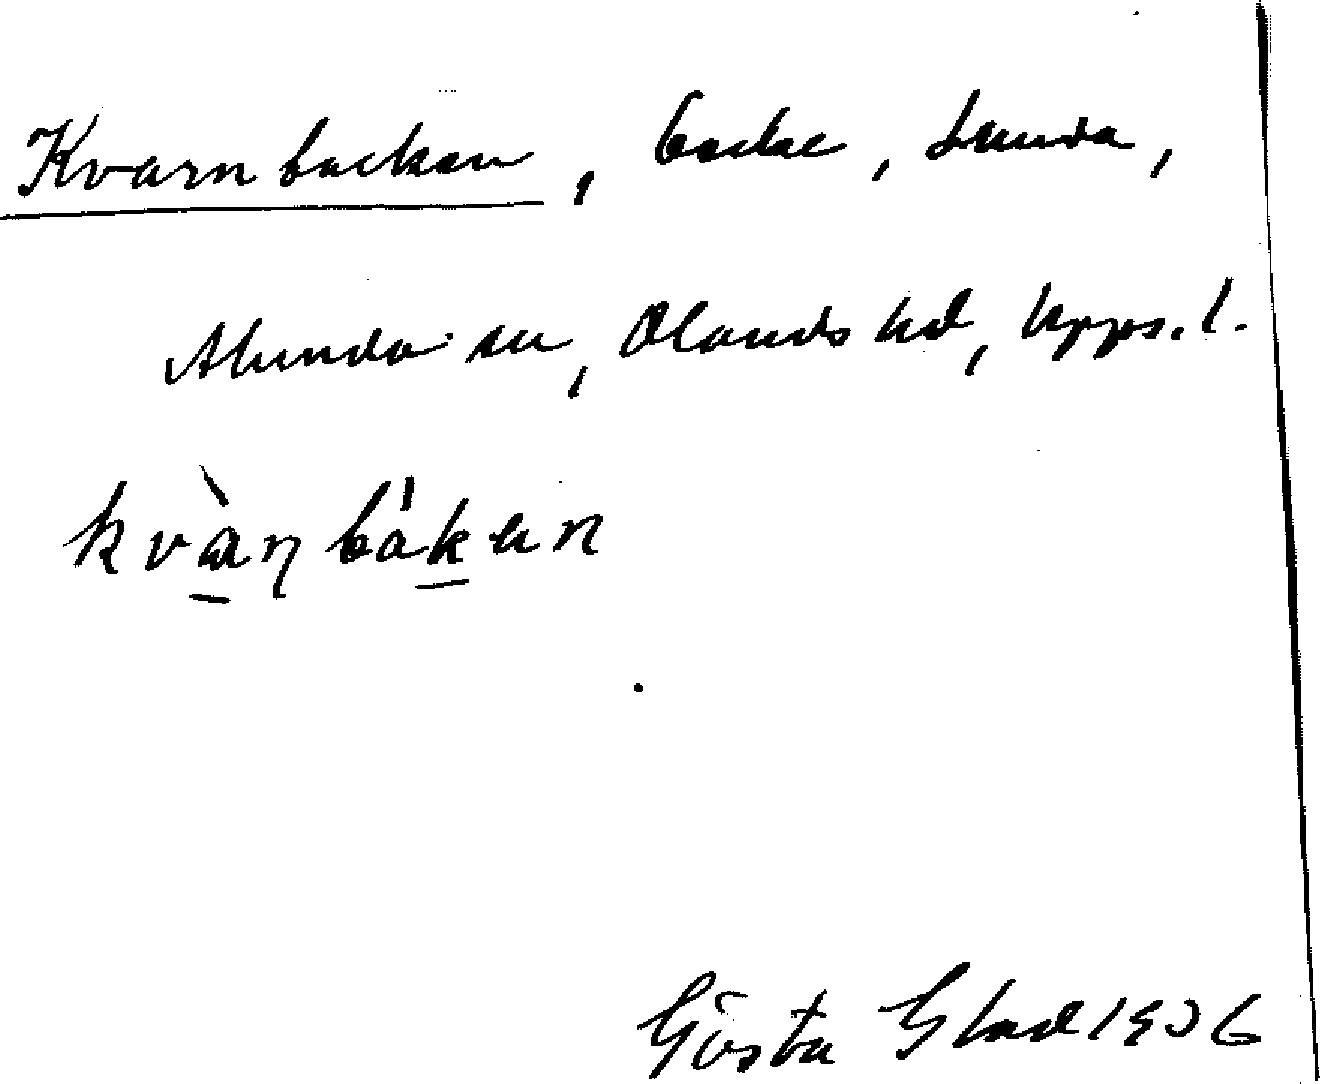 Kvarnbacken, backe, Lunda,
Alunda sn, Olands hd, Upps. l.
kvàɳbákən
Gösta Glad 1936